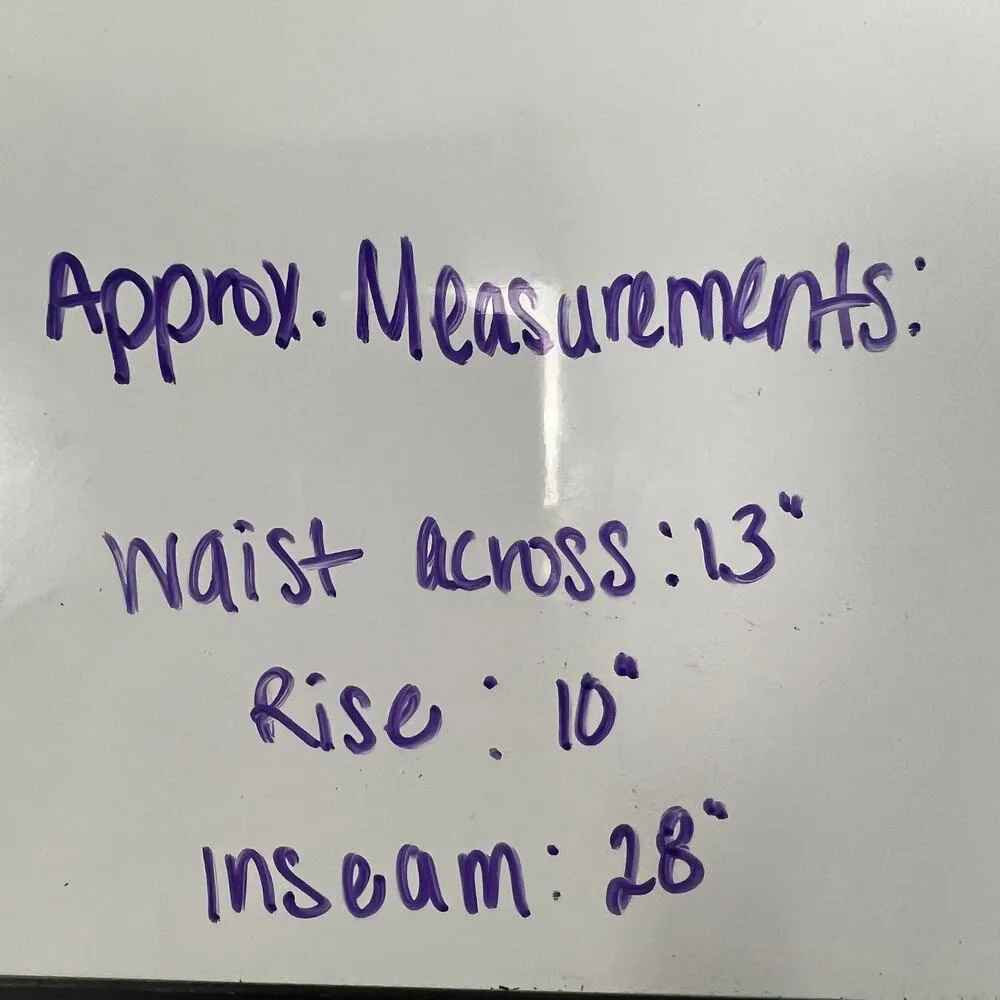 Approx. Measurements:
Waist across: 13"
Rise: 10"
Inseam: 28"